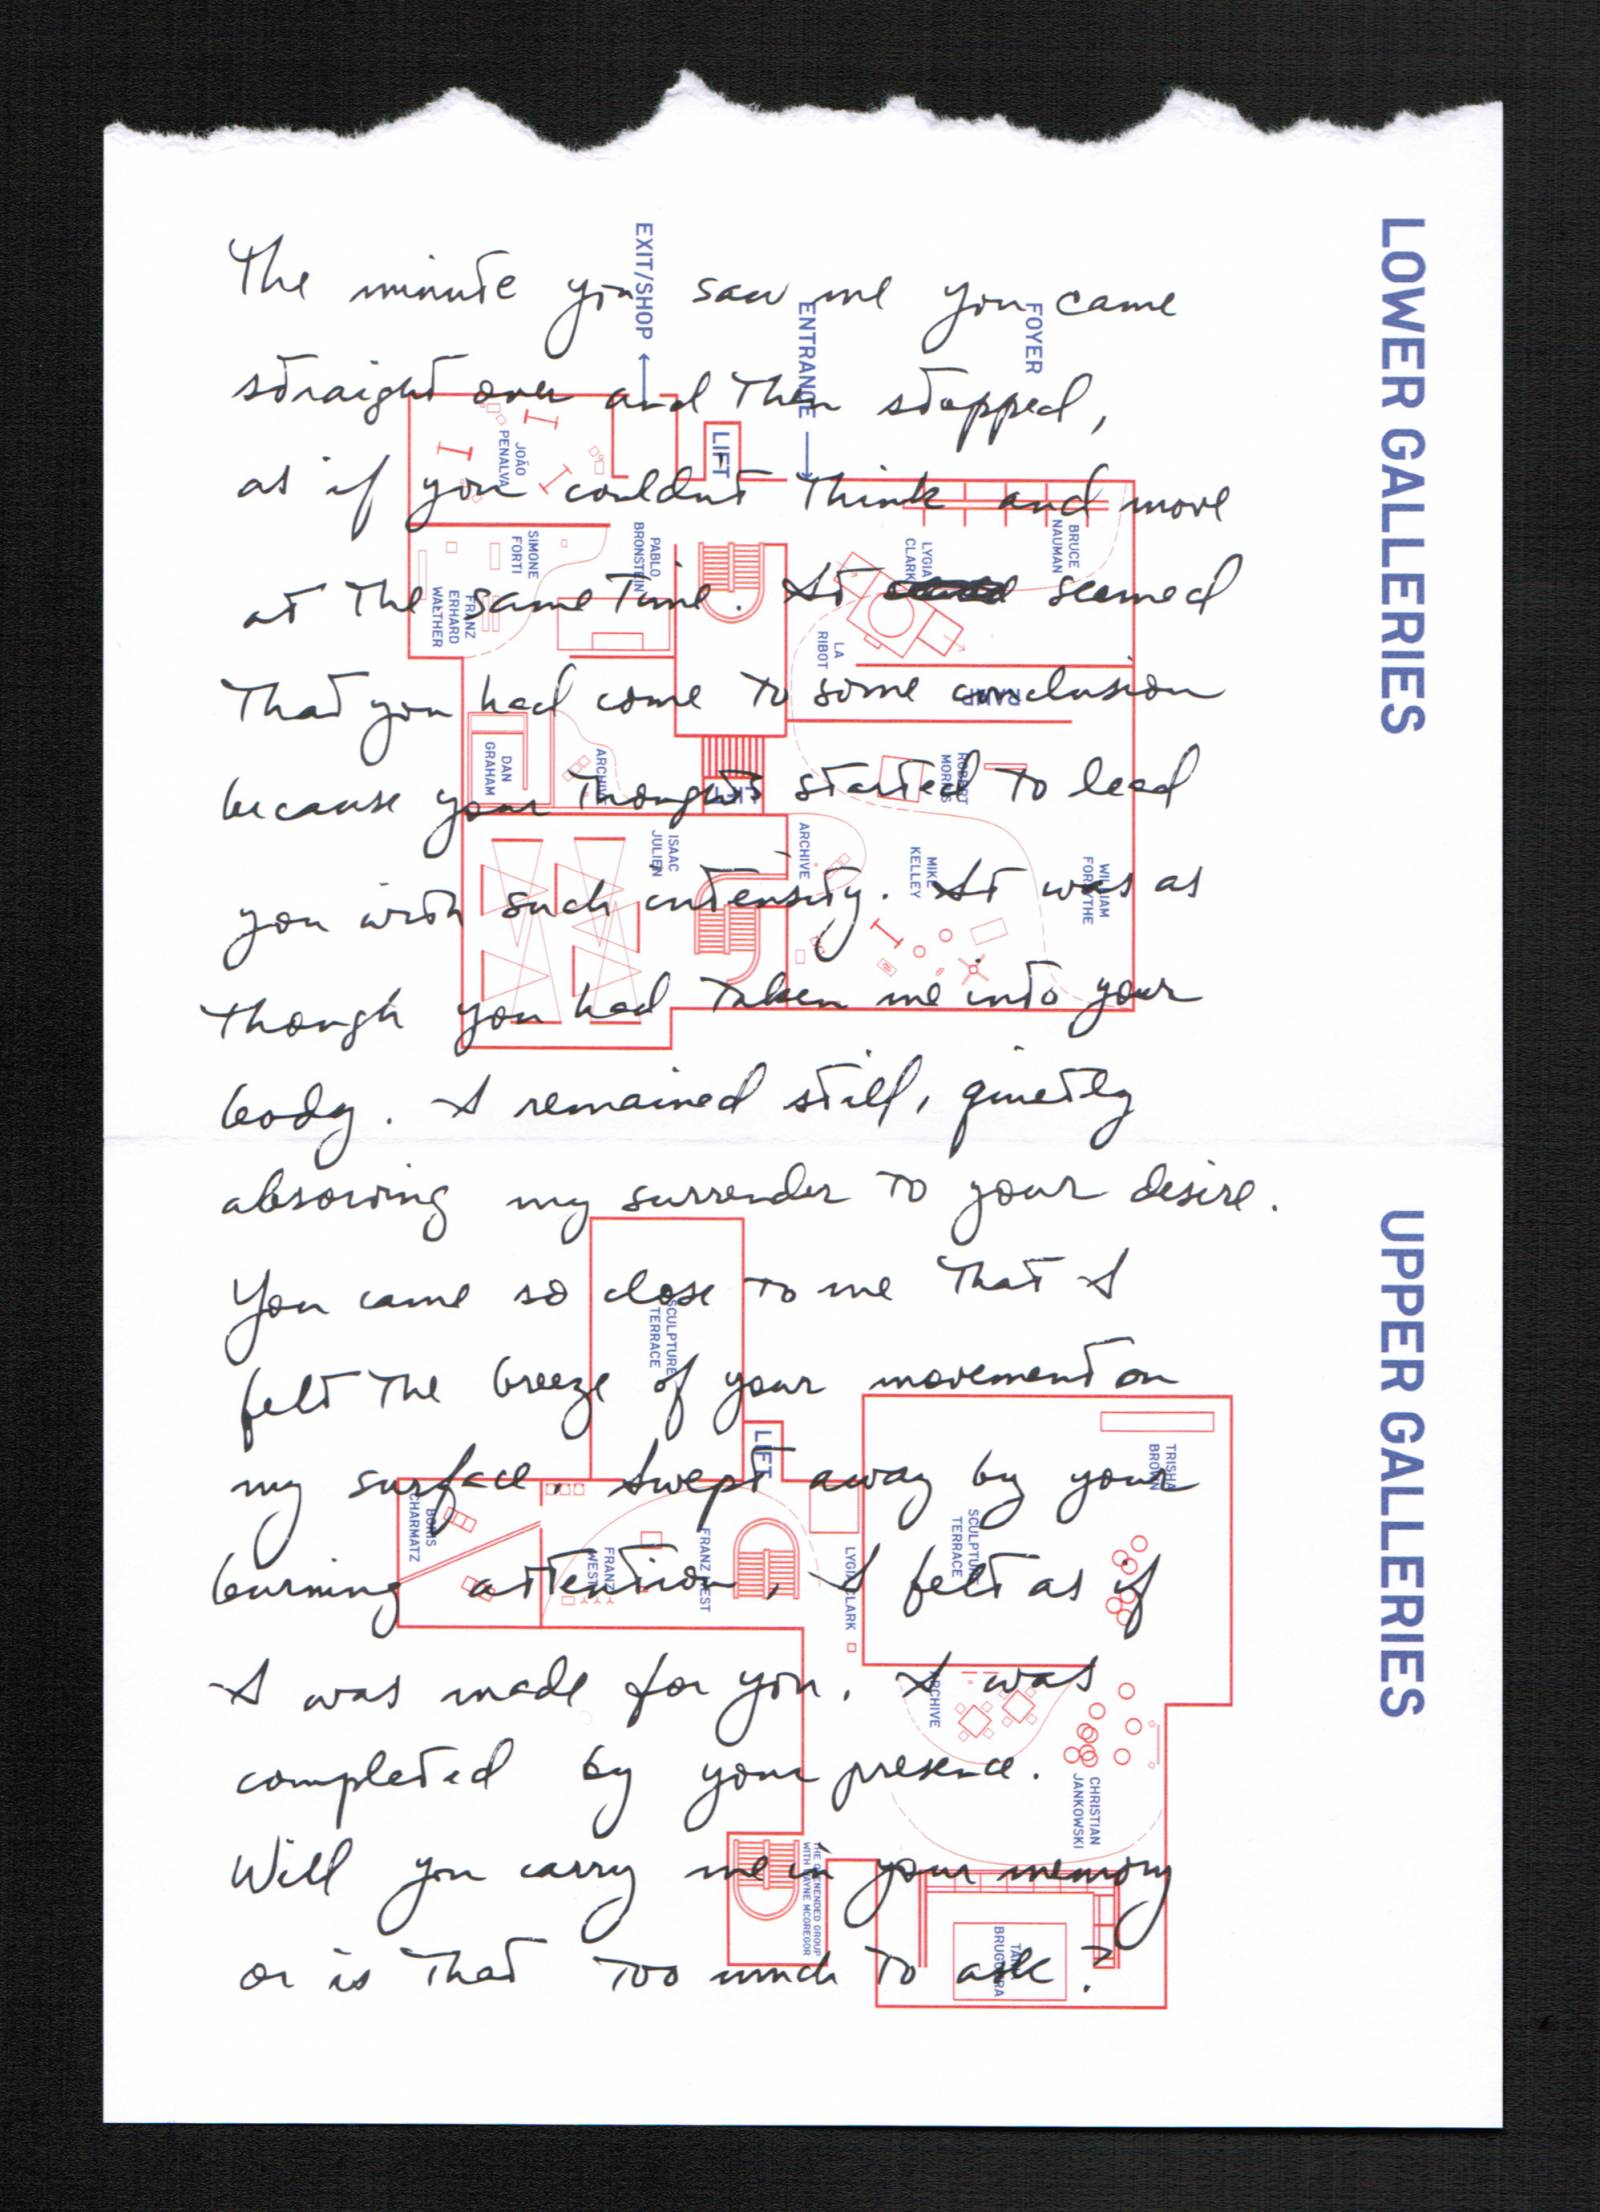 The minute you saw me you came
straight over and then stopped,
as if you couldnt think and move
at the same time. It seemed
that you had come to some conclusion
because your thoughts started to lead
you with such intensity. It was as
though you had taken me into your
body. I remained still, quietly
absorving my surrender to your desire.
You came so close to me that I
felt the breeze of your movement on
my surface. Swept away by your
burning attention, I felt as if
I was made for you. I was
completed by your presence.
Will you carry me in your memory
or is that too much to ask?
LOWER GALLERIES
FOYER
ENTRANCE
EXIT/SHOP
LIFT
JOÃO
PENALVA
BRUCE
NAUMAN
LYGIA
CLARK
PABLO
BRONSTEIN
SIMONE
FORTI
FRANZ
ERHARD
WALTHER
LA
RIBOT
RAMP
ROBERT
MORRIS
LIFT
ARCHIVE
DAN
GRAHAM
WILLIAM
FORSYTHE
MIKE
KELLEY
ARCHIVE
ISAAC
JULIEN
UPPER GALLERIES
SCULPTURE
TERRACE
LIFT
TRISHA
BROWN
SCULPTURE
TERRACE
LYGIA CLARK
FRANZ WEST
FRANZ
WEST
BORIS
CHARMATZ
ARCHIVE
CHRISTIAN
JANKOWSKI
THE OPENENDED GROUP
WITH WAYNE MCGREGOR
TANIA
BRUGUERA